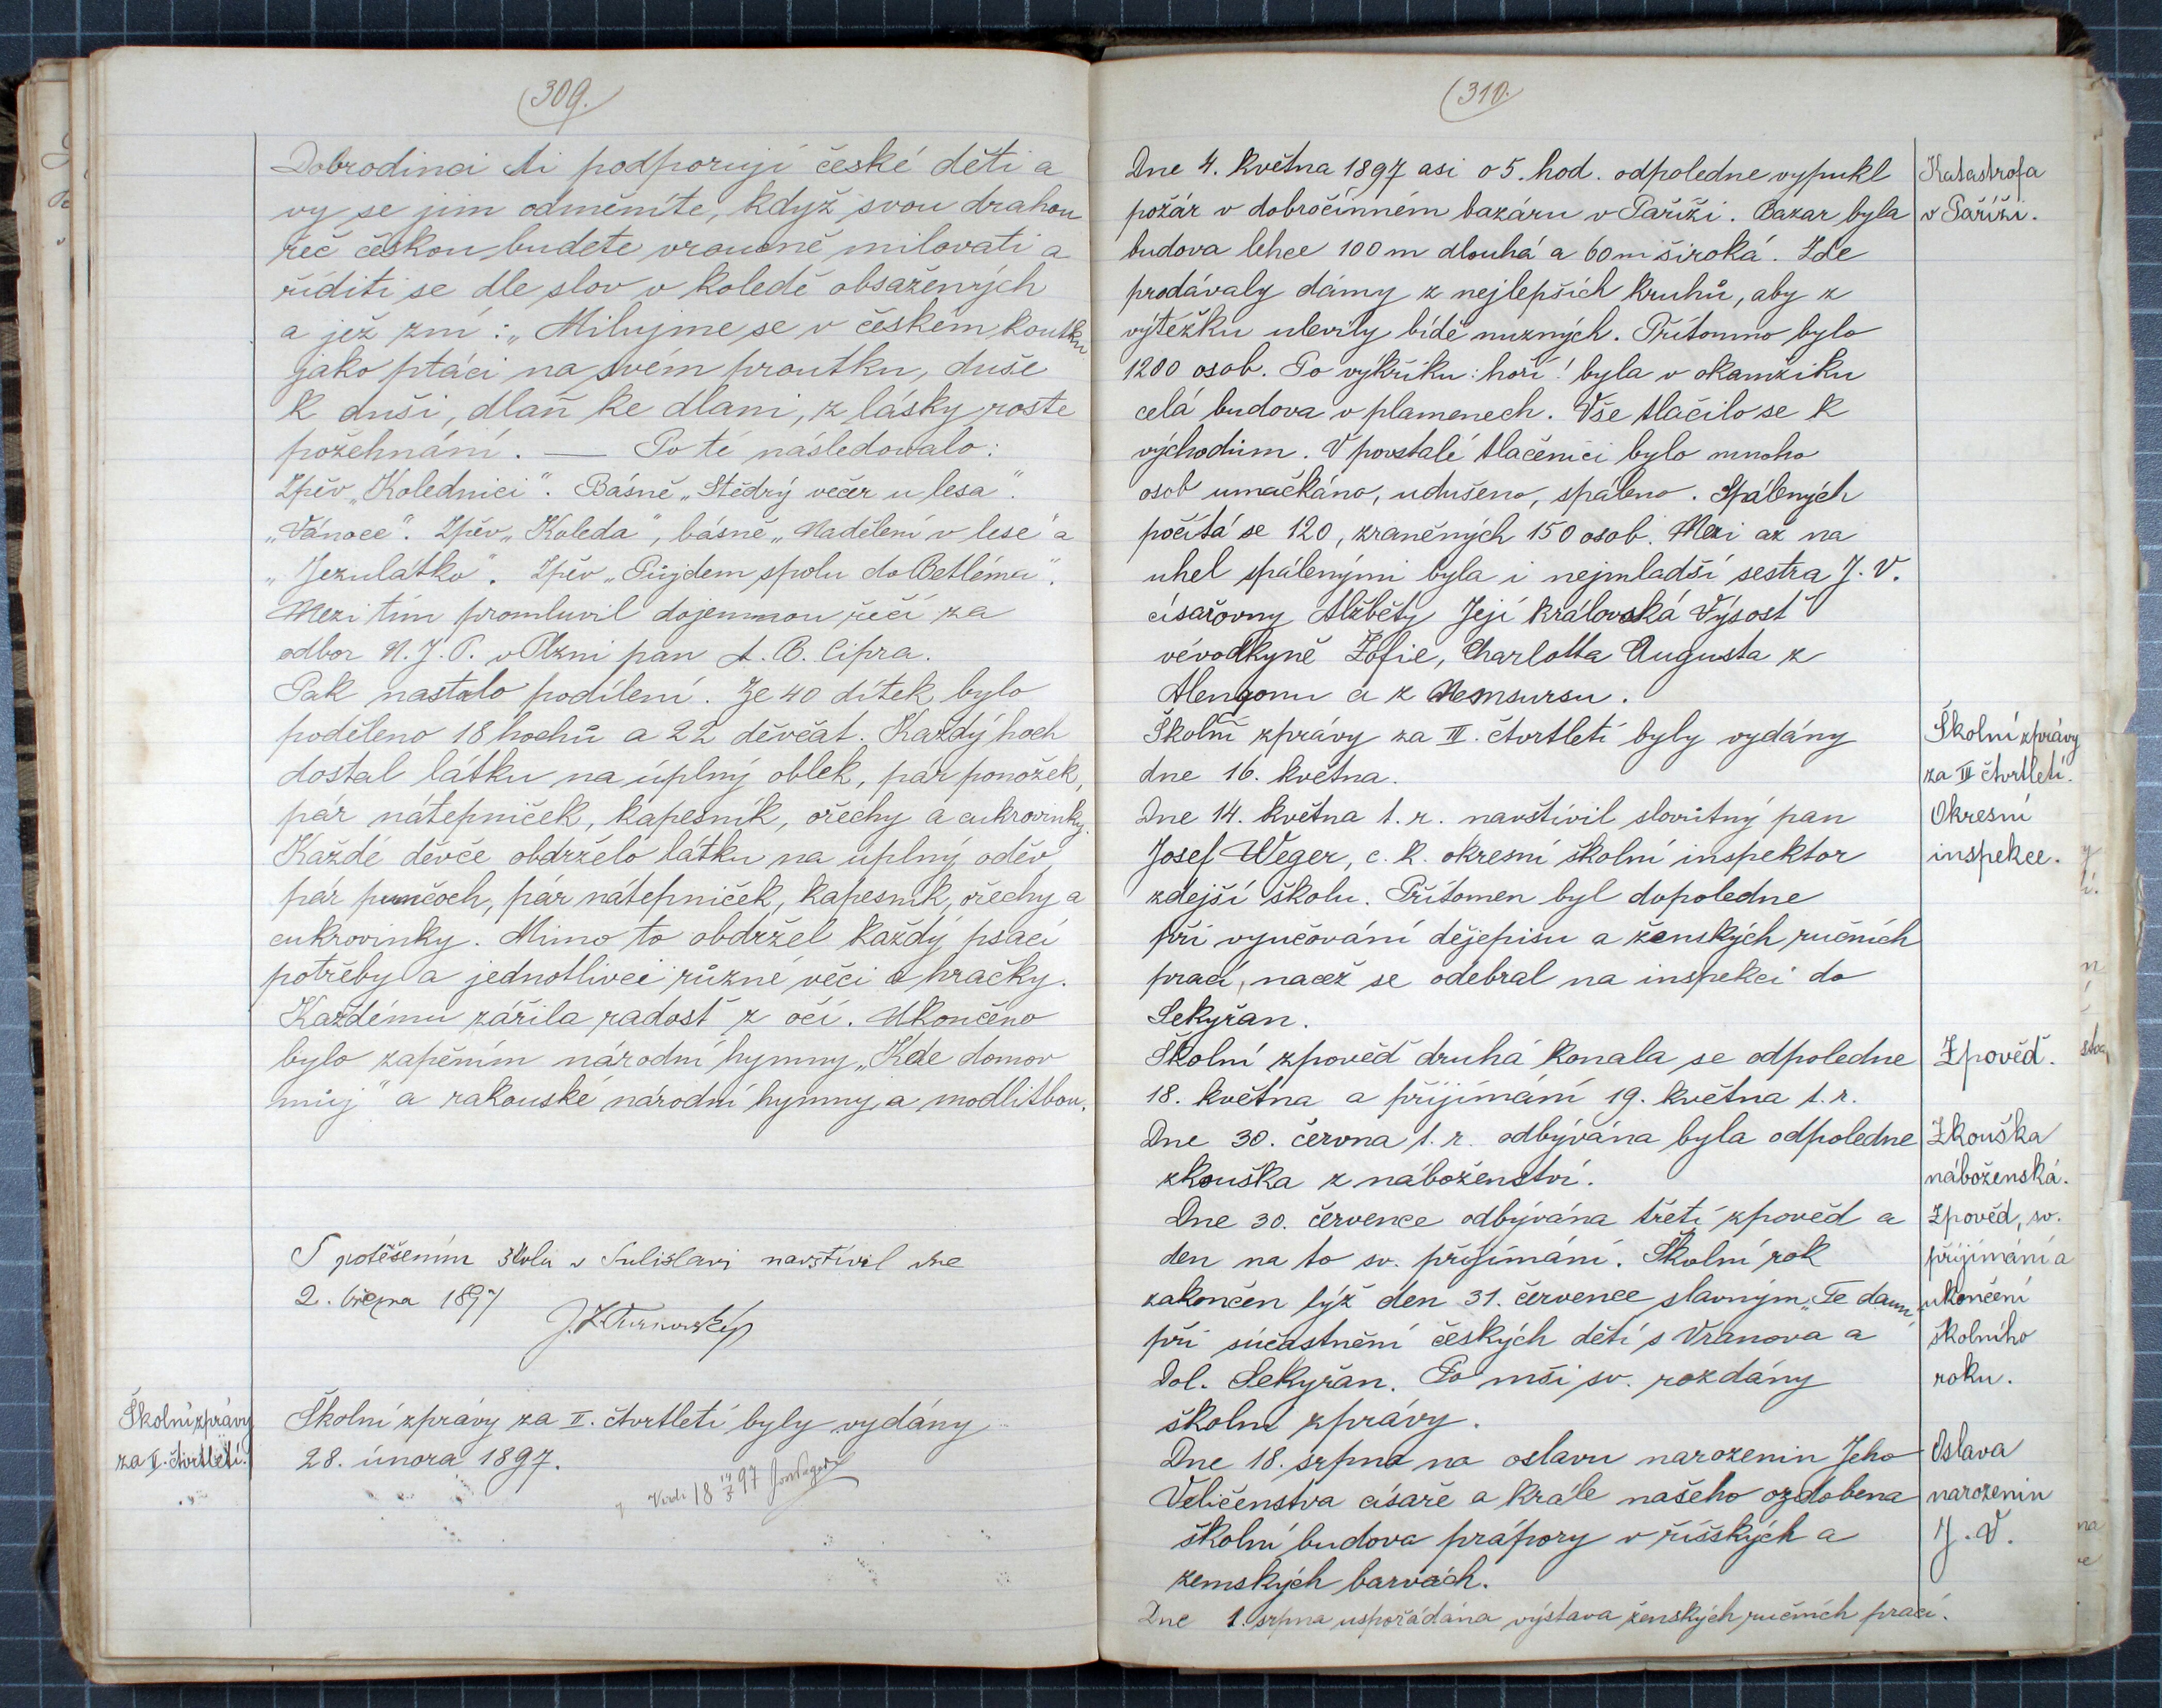 309.
Dobrodinci ti podporují české děti a
vy se jim odměníte, když svou drahou
řeč českou budete vroucně milovati a
říditi se dle slov v koledě obsažených
a jež zní: „Milujme se v českém koutku
jako ptáci na svém proutku, duše
k duši, dlaň ke dlani, z lásky roste
požehnání. — Po té následovalo:
Zpěv „Koledníci". Básně „Štědrý večer u lesa".
„Vánoce". Zpěv „Koleda", básně „Nadělení v lese" a
„Jezulátko". Zpěv „Půjdem spolu do Betléma".
Mezi tím promluvil dojemnou řečí za
odbor N. J. P. v Plzni pan A. B. Cipra.
Pak nastalo podílení. Ze 40 dítek bylo
poděleno 18 hochů a 22 děvčat. Každý hoch
dostal látku na úplný oblek, pár ponožek,
pár nátepniček, kapesník, ořechy a cukrovinky.
Každé děvče obdrželo látku na úplný oděv,
pár punčoch, pár nátepniček, kapesník, ořechy a
cukrovinky. Mimo to obdržel každý psací
potřeby a jednotlivci různé věci a hračky.
Každému zářila radost z očí. Ukončeno
bylo zapěním národní hymny „Kde domov
můj" a rakouské národní hymny a modlitbou.
S potěšením školu v Sulislavi navštívil dne
2. března 1897
J.L.Turnovský
Školní zprávy
za II. čtvrtletí.
Školní zprávy za II. čtvrtletí byly vydány
28. února 1897.
18 14/5 97
310.
Dne 4. května 1897 asi o 5. hod. odpoledne vypukl
požár v dobročinném bazáru v Paříži. Bazar byla
budova lehce 100 m dlouhá a 60 m široká. Zde
prodávaly dámy z nejlepších kruhů, aby z
výtěžku ulevily bídě nuzných. Přítomno bylo
1200 osob. Po výkřiku: hoří! byla v okamžiku
celá budova v plamenech. Vše tlačilo se k
východům. V povstalé tlačenici bylo mnoho
osob umačkáno, udušeno, spáleno. Spálených
počítá se 120, zraněných 150 osob. Mezi až na
uhel spálenými byla i nejmladší sestra J. V.
císařovny Alžběty Její Královská Výsost
vévodkyně Žofie, Charlotta Augusta z
Alengonu a z Nemsursu.
Katastrofa
v Paříži.
Školní zprávy za III. čtvrtletí byly vydány
dne 16. května.
Školní zprávy
za III čtvrtletí.
Dne 14. května t. r. navštívil slovutný pan
Josef Weger, c. k. okresní školní inspektor
zdejší školu. Přítomen byl dopoledne
při vyučování dějepisu a ženských ručních
prací, načež se odebral na inspekci do
Sekyřan.
Okresní
inspekce.
Školní zpověď druhá konala se odpoledne
18. května a přijímání 19. května t. r.
Zpověď.
Dne 30. června t. r. odbývána byla odpoledne
zkouška z náboženství.
Zkouška
náboženská.
Dne 30. července odbývána třetí zpověď a
den na to sv. přijímání. Školní rok
zakončen týž den 31. července slavným „Te daum"
při súčastnění českých dětí s Vranova a
Dol. Sekyřan. Po mši sv. rozdány
školní zprávy.
Zpověď, sv.
přijímání a
ukončení
školního
roku.
Dne 18. srpna na oslavu narozenin Jeho
Veličenstva císaře a krále našeho ozdobena
školní budova prápory v říšských a
zemských barvách.
Oslava
narozenin
J. V.
Dne 1. srpna uspořádána výstava ženských ručních prací.